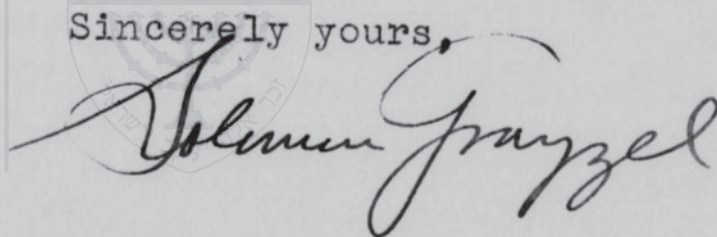 Sincerely yours,
Solomon Grayzel